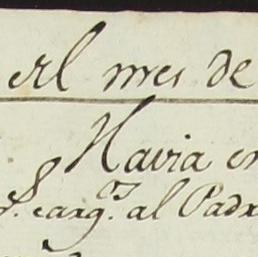 el mes de
Havia en
P. carg.^n al Padr